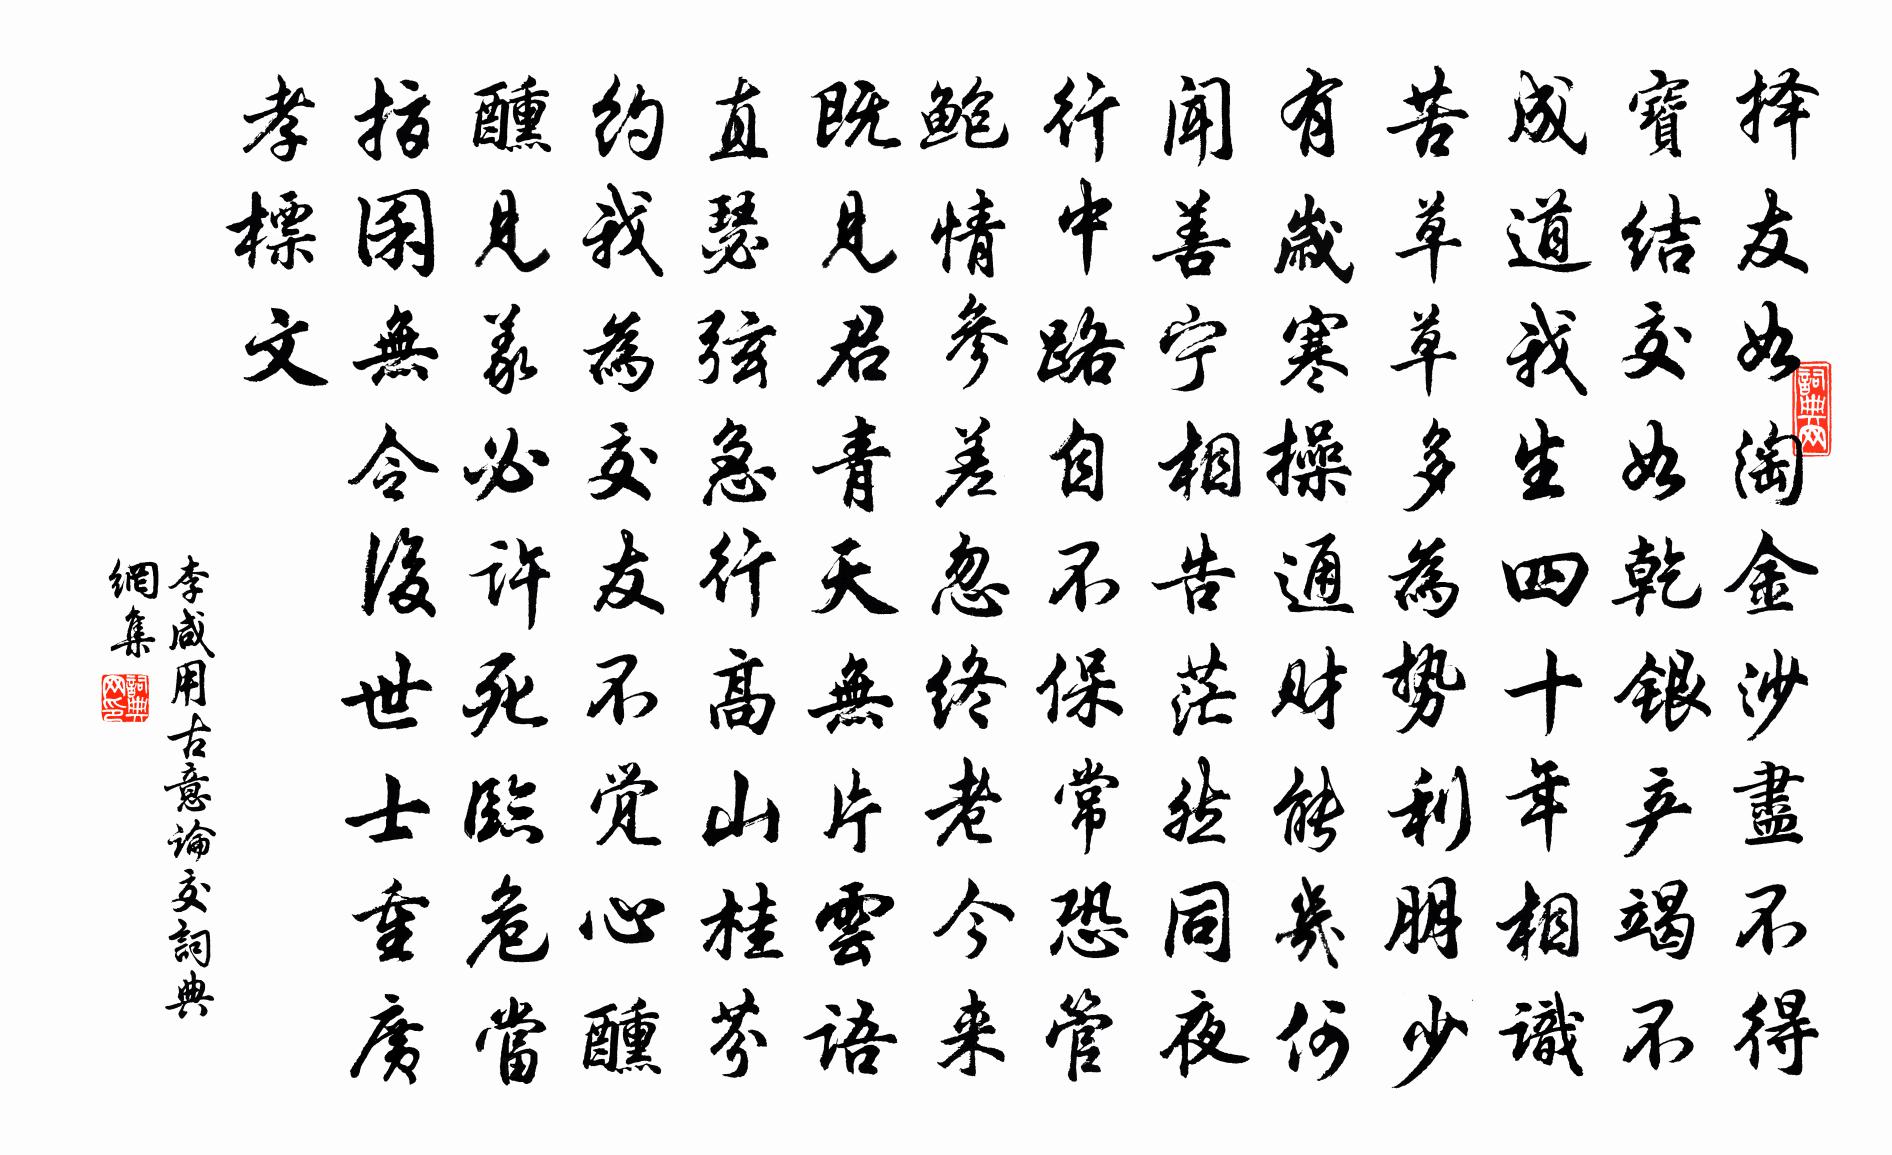 择友如淘金沙盡不得
寶结交如乾銀产竭不
成道我生四十年相識
苦草草多為势利朋少
有歲寒操通财能幾何
闻善宁相告茫然同夜
行中路自不保常恐管
鲍情参差忽终老今来
既見君青天無片雲语
直瑟弦急行高山桂芬
约我為交友不觉心醺
醺見義必许死臨危當
指囷無令後世士重廣
孝標文
李咸用古意論交詞典
網集
詞典网
詞典网